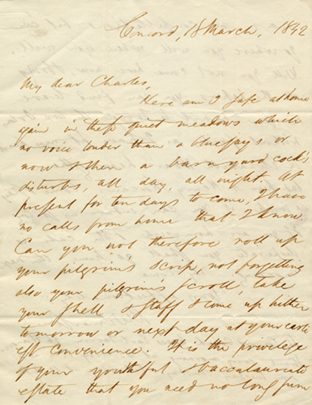 Concord, 18 March, 1842
My dear Charles,
Here am I safe at home
again in these quiet meadows which
no voice louder than a bluejay's or
now & then a barnyard cock's
disturbs, all day, all night. At
present for ten days to come, I have
no calls from home that I know.
Can you not therefore roll up
your pilgrim's scrip, not forgetting
also your pilgrim's scroll, take
your shell & staff & come up hither
tomorrow or next day at your earli
est convenience. It is the privilege
of your youthful & baccalaureate
estate that you need no long